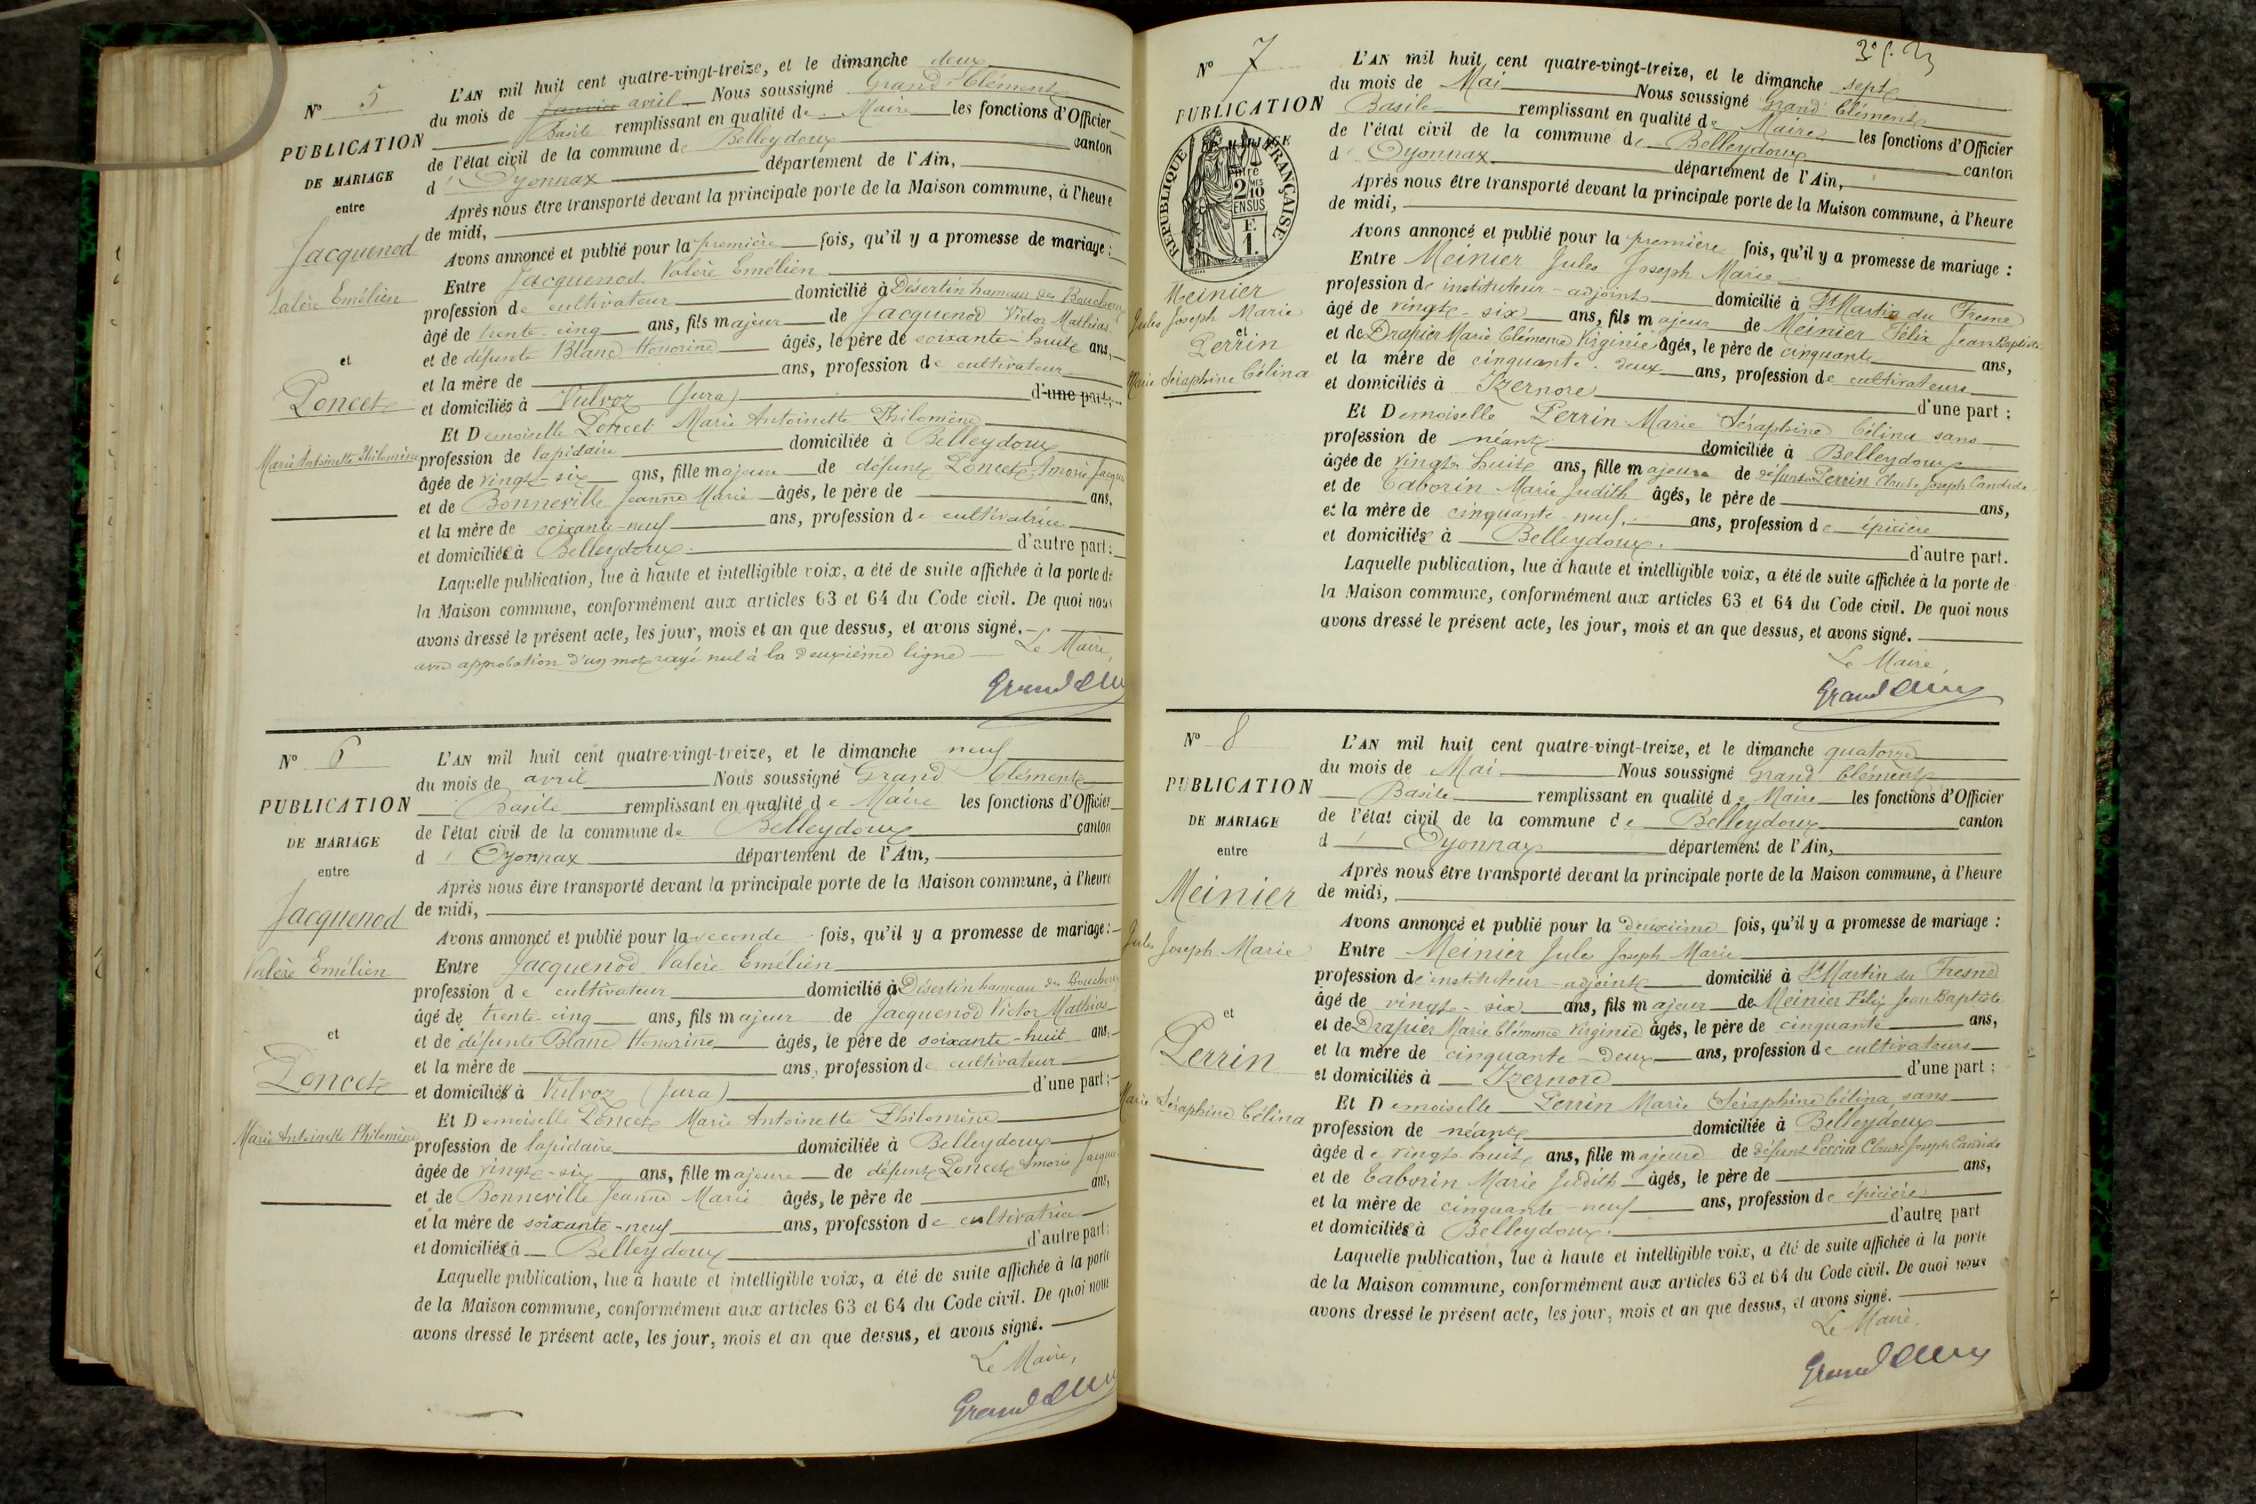 N° 5
PUBLICATION
DE MARIAGE
entre
Jacquenod
Valère Emélien
et
Poncet
Marie Antoinette Philomène
L'AN mil huit cent quatre-vingt-treize, et le dimanche deux
du mois de Janvier avril Nous soussigné Grand Clément
Basile remplissant en qualité de Maire les fonctions d'Officier
de l'état civil de la commune de Belleydoux canton
d' Oyonnax département de l'Ain,
Après nous être transporté devant la principale porte de la Maison commune, à l'heure
de midi,
Avons annoncé et publié pour la première fois, qu'il y a promesse de mariage :
Entre Jacquenod Valère Emélien
profession de cultivateur domicilié à Désertin hameau des Bouchoux
âgé de trente-cinq ans, fils majeur de Jacquenod Victor Mathias
et de défunte Blanc Honorine âgés, le père de soixante-huit ans,
et la mère de ans, profession de cultivateur
et domiciliés à Vulvoz (Jura) d'une part ;
Et Demoiselle Poncet Marie Antoinette Philomène
profession de lapidaire domiciliée à Belleydoux
âgée de vingt-six ans, fille majeure de défunt Poncet Amorie Jacques
et de Bonneville Jeanne Marie âgés, le père de ans,
et la mère de soixante-neuf ans, profession de cultivatrice
et domiciliés à Belleydoux. d'autre part :
Laquelle publication, lue à haute et intelligible voix, a été de suite affichée à la porte de
la Maison commune, conformément aux articles 63 et 64 du Code civil. De quoi nous
avons dressé le présent acte, les jour, mois et an que dessus, et avons signé.
avec approbation d'un mot rayé nul à la deuxième ligne Le Maire,
Grand Clém
N° 6
PUBLICATION
DE MARIAGE
entre
Jacquenod
Valère Emélien
et
Poncet
Marie Antoinette Philomène
L'AN mil huit cent quatre-vingt-treize, et le dimanche neuf
du mois de avril Nous soussigné Grand Clément
Basile remplissant en qualité de Maire les fonctions d'Officier
de l'état civil de la commune de Belleydoux canton
d' Oyonnax département de l'Ain,
Après nous être transporté devant la principale porte de la Maison commune, à l'heure
de midi,
Avons annoncé et publié pour la seconde fois, qu'il y a promesse de mariage :
Entre Jacquenod Valère Emélien
profession de cultivateur domicilié à Désertin hameau des Bouchoux
âgé de trente-cinq ans, fils majeur de Jacquenod Victor Mathias
et de défunte Blanc Honorine âgés, le père de soixante-huit ans,
et la mère de ans, profession de cultivateur
et domiciliés à Vulvoz (Jura) d'une part ;
Et Demoiselle Poncet Marie Antoinette Philomène
profession de lapidaire domiciliée à Belleydoux
âgée de vingt-six ans, fille majeure de défunt Poncet Amorie Jacques
et de Bonneville Jeanne Marie âgés, le père de ans,
et la mère de soixante-neuf ans, profession de cultivatrice
et domiciliés à Belleydoux d'autre part :
Laquelle publication, lue à haute et intelligible voix, a été de suite affichée à la porte
de la Maison commune, conformément aux articles 63 et 64 du Code civil. De quoi nous
avons dressé le présent acte, les jour, mois et an que dessus, et avons signé.
Le Maire,
Grand Clém
N° 7
PUBLICATION
RÉPUBLIQUE FRANÇAISE
2 MES 10
EN SUS
F.
1.
Meinier
Jules Joseph Marie
et
Perrin
Marie Séraphine Célina
L'AN mil huit cent quatre-vingt-treize, et le dimanche sept
du mois de Mai Nous soussigné Grand Clément
Basile remplissant en qualité de Maire les fonctions d'Officier
de l'état civil de la commune de Belleydoux canton
d' Oyonnax département de l'Ain,
Après nous être transporté devant la principale porte de la Maison commune, à l'heure
de midi,
Avons annoncé et publié pour la première fois, qu'il y a promesse de mariage :
Entre Meinier Jules Joseph Marie
profession de instituteur-adjoint domicilié à St Martin du Fresne
âgé de vingt-six ans, fils majeur de Meinier Félix Jean Baptiste
et de Drapier Marie Clémence Virginie âgés, le père de cinquante ans,
et la mère de cinquante-deux ans, profession de cultivateurs
et domiciliés à Izernore d'une part :
Et Demoiselle Perrin Marie Séraphine Célina sans
profession de néant domiciliée à Belleydoux
âgée de vingt-huit ans, fille majeure de défunt Perrin Claude Joseph Candide
et de Taborin Marie Judith âgés, le père de ans,
et la mère de cinquante-neuf ans, profession de épicière
et domiciliés à Belleydoux. d'autre part.
Laquelle publication, lue à haute et intelligible voix, a été de suite affichée à la porte de
la Maison commune, conformément aux articles 63 et 64 du Code civil. De quoi nous
avons dressé le présent acte, les jour, mois et an que dessus, et avons signé.
Le Maire,
Grand Clém
N° 8
PUBLICATION
DE MARIAGE
entre
Meinier
Jules Joseph Marie
et
Perrin
Marie Séraphine Célina
L'AN mil huit cent quatre-vingt-treize, et le dimanche quatorze
du mois de Mai Nous soussigné Grand Clément
Basile remplissant en qualité de Maire les fonctions d'Officier
de l'état civil de la commune de Belleydoux canton
d' Oyonnax département de l'Ain,
Après nous être transporté devant la principale porte de la Maison commune, à l'heure
de midi,
Avons annoncé et publié pour la deuxième fois, qu'il y a promesse de mariage :
Entre Meinier Jules Joseph Marie
profession de instituteur-adjoint domicilié à St Martin du Fresne
âgé de vingt-six ans, fils majeur de Meinier Félix Jean Baptiste
et de Drapier Marie Clémence Virginie âgés, le père de cinquante ans,
et la mère de cinquante-deux ans, profession de cultivateurs
et domiciliés à Izernore d'une part ;
Et Demoiselle Perrin Marie Séraphine Célina sans
profession de néant domiciliée à Belleydoux
âgée de vingt-huit ans, fille majeure de défunt Perrin Claude Joseph Candide
et de Taborin Marie Judith âgés, le père de ans,
et la mère de cinquante-neuf ans, profession de épicière
et domiciliés à Belleydoux. d'autre part
Laquelle publication, lue à haute et intelligible voix, a été de suite affichée à la porte
de la Maison commune, conformément aux articles 63 et 64 du Code civil. De quoi nous
avons dressé le présent acte, les jour, mois et an que dessus, et avons signé.
Le Maire,
Grand Clém